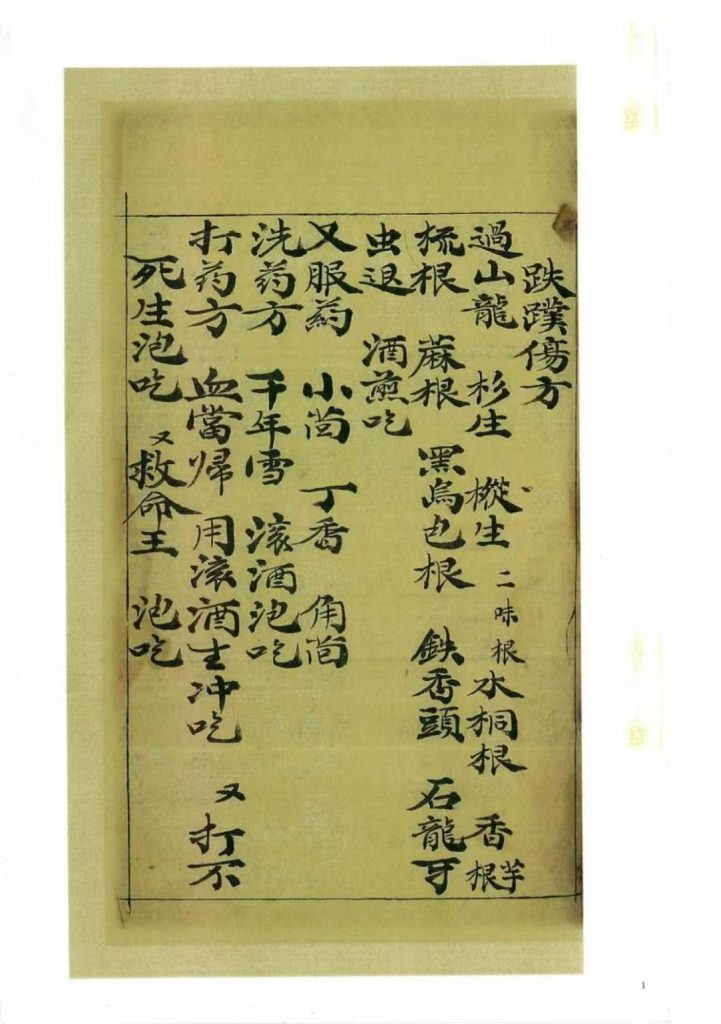 跌蹼傷方
過山龍 杉生 樅生 二味根 水桐根 香芋根
梳根 蔴根 黑烏包根 鉄香頭 石龍牙
虫退 酒煎吃
又服药 小茴 丁香 角茴
洗药方 千年雪 滚酒泡吃
打药方 血當歸 用滚酒生冲吃 又打不
死生泡吃 又救命王 泡吃
1